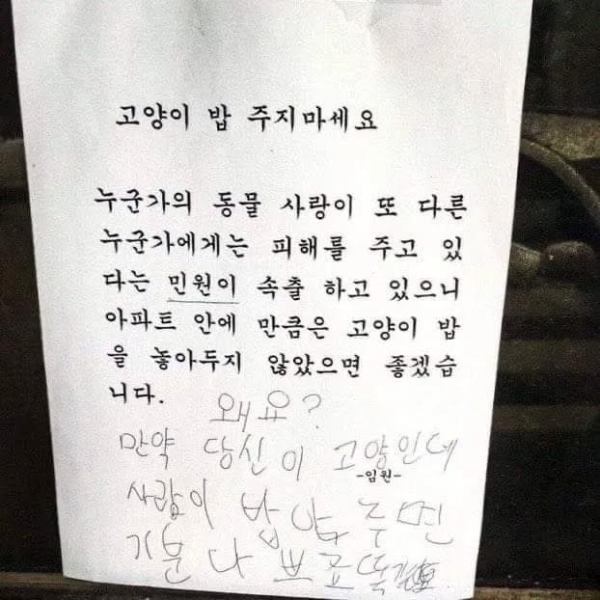 고양이 밥 주지마세요
누군가의 동물 사랑이 또 다른
누군가에게는 피해를 주고 있
다는 민원이 속출 하고 있으니
아파트 안에 만큼은 고양이 밥
을 놓아두지 않았으면 좋겠습
니다.
왜요?
만약 당신이 고양인데
-임원-
사람이 밥 안 주면
기분 나쁘